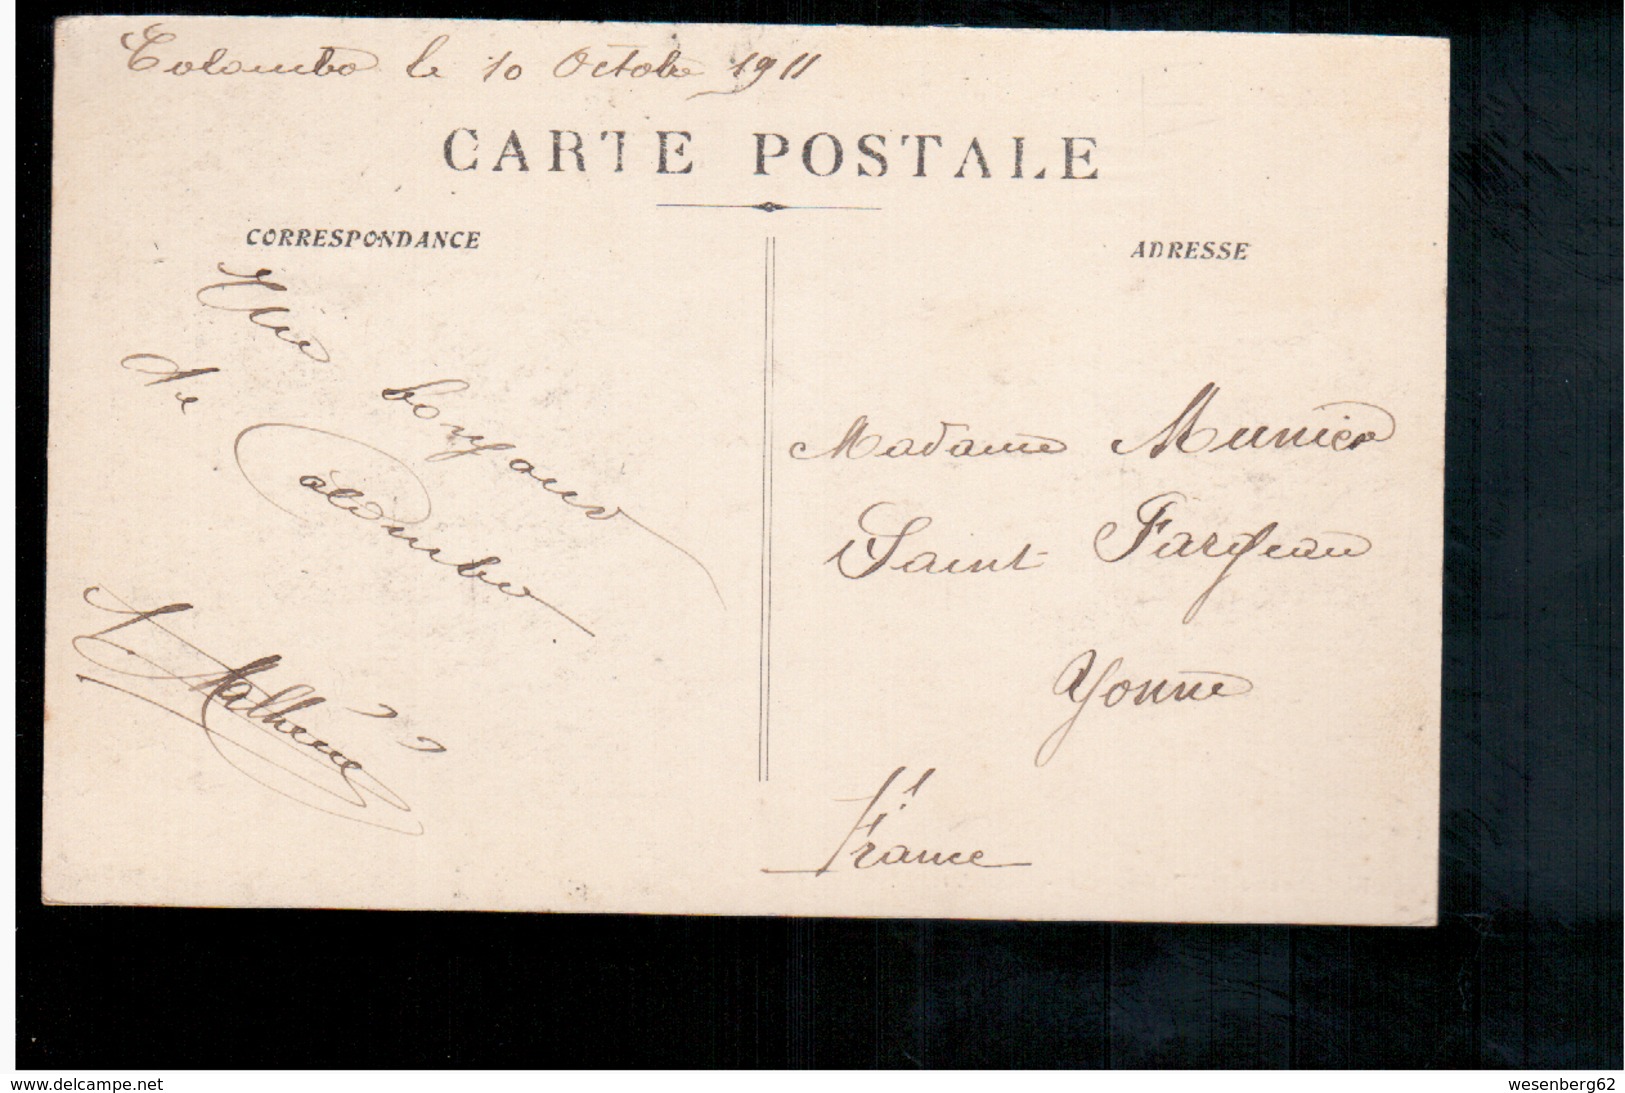 Colombo le 10 Octobre 1911
CARTE POSTALE
CORRESPONDANCE
ADRESSE
Un bonjour
de Colombo
Madame Munier
Saint Fargeau
Yonne
France
www.delcampe.net
wesenberg62